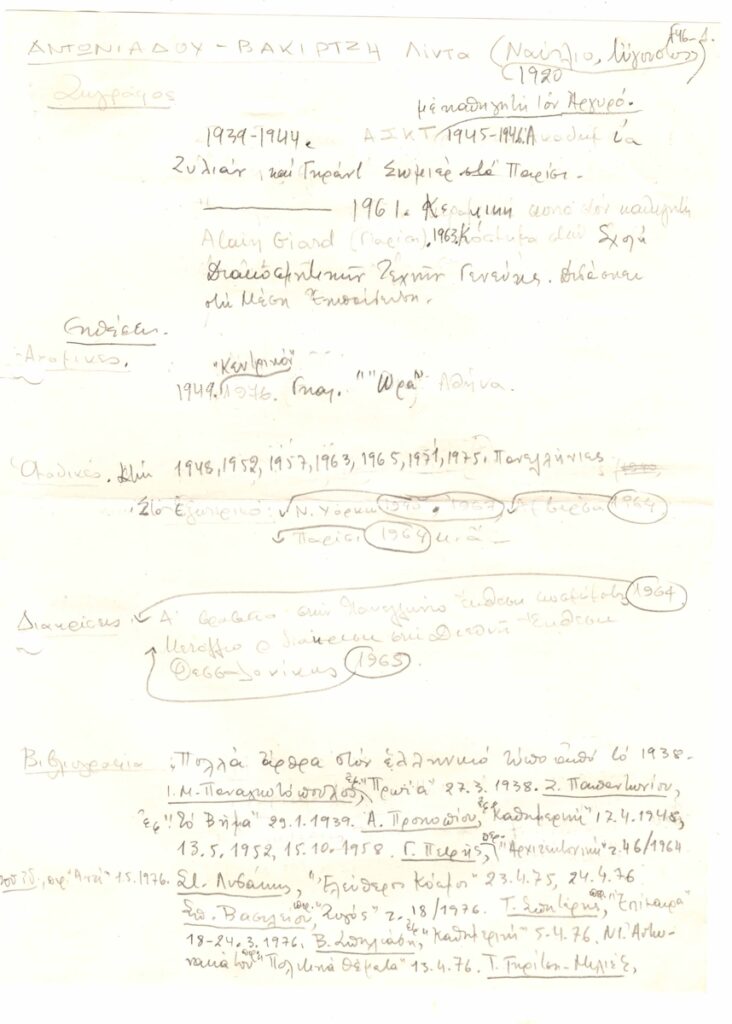 ΑΝΤΩΝΙΑΔΟΥ - ΒΑΚΙΡΤΖΗ Λίντα (Ναύπλιο, Αύγουστος
1920)
Ζωγράφος
με καθηγητή τον Αργυρό.
1939-1944. ΑΣΚΤ 1945-1946. Ακαδημία
Ζυλιάν και Γκράντ Σωμιέρ στο Παρίσι.
1961. Κεραμική κοντά στον καθηγητή
Alain Giard (Παρίσι), 1963 Κόσμημα στην Σχολή
Διακοσμητικών Τεχνών Γενεύης. Διδάσκει
στη Μέση Εκπαίδευση.
Εκθέσεις.
Ατομικές.
"Κεντρικόν"
1949. 1976. Γκαλ. "Ώρα" Αθήνα.
Ομαδικές. Στις 1948, 1952, 1957, 1963, 1965, 1971, 1975. Πανελλήνιες
Στο Εξωτερικό: Ν. Υόρκη 1967 1964
Παρίσι 1964 κ.ά.
Διακρίσεις Α' βραβείο στην Πανελλήνιο Έκθεση κοσμήματος 1964
Μετάλλιο διάκριση στη Διεθνή Έκθεση
Θεσσαλονίκης 1965.
Βιβλιογραφία Πολλά άρθρα στον ελληνικό τύπο από το 1938.
Ι.Μ. Παναγιωτόπουλος, εφ. "Πρωΐα" 27.3.1938. Ζ. Παπαντωνίου,
εφ. "Το Βήμα" 29.1.1939. Α. Προκοπίου, εφ. "Καθημερινή" 17.4.1948,
13.5.1952, 15.10.1958. Γ. Πετρής, περ. "Αρχιτεκτονική" τ.46/1964
του ίδ., περ. "Αντί" 1.5.1976. Στ. Λυδάκης, "Ελεύθερος Κόσμος" 23.4.75, 24.4.76
Σπ. Βασιλείου, περ. "Ζυγός" τ. 18/1976. Τ. Σπητέρης, περ. "Επίκαιρα"
18-24.3.1976. Β. Σπηλιάδη, εφ. "Καθημερινή" 5.4.76. Ντ. Αντω-
νακάτου περ. "Πολιτικά Θέματα" 13.4.76. Τ. Γκρίτση-Μιλλιέξ,